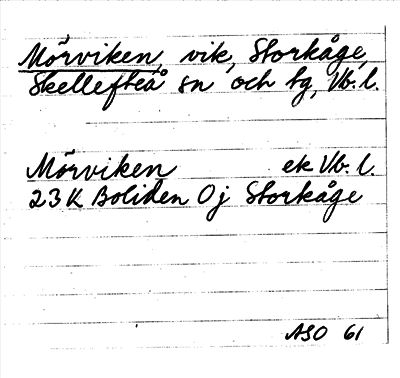 Mörviken, vik, Storkåge,
Skellefteå sn och tg, Vb. l.
Mörviken ek Vb. l.
23K Boliden 0j Storkåge
ASO 61